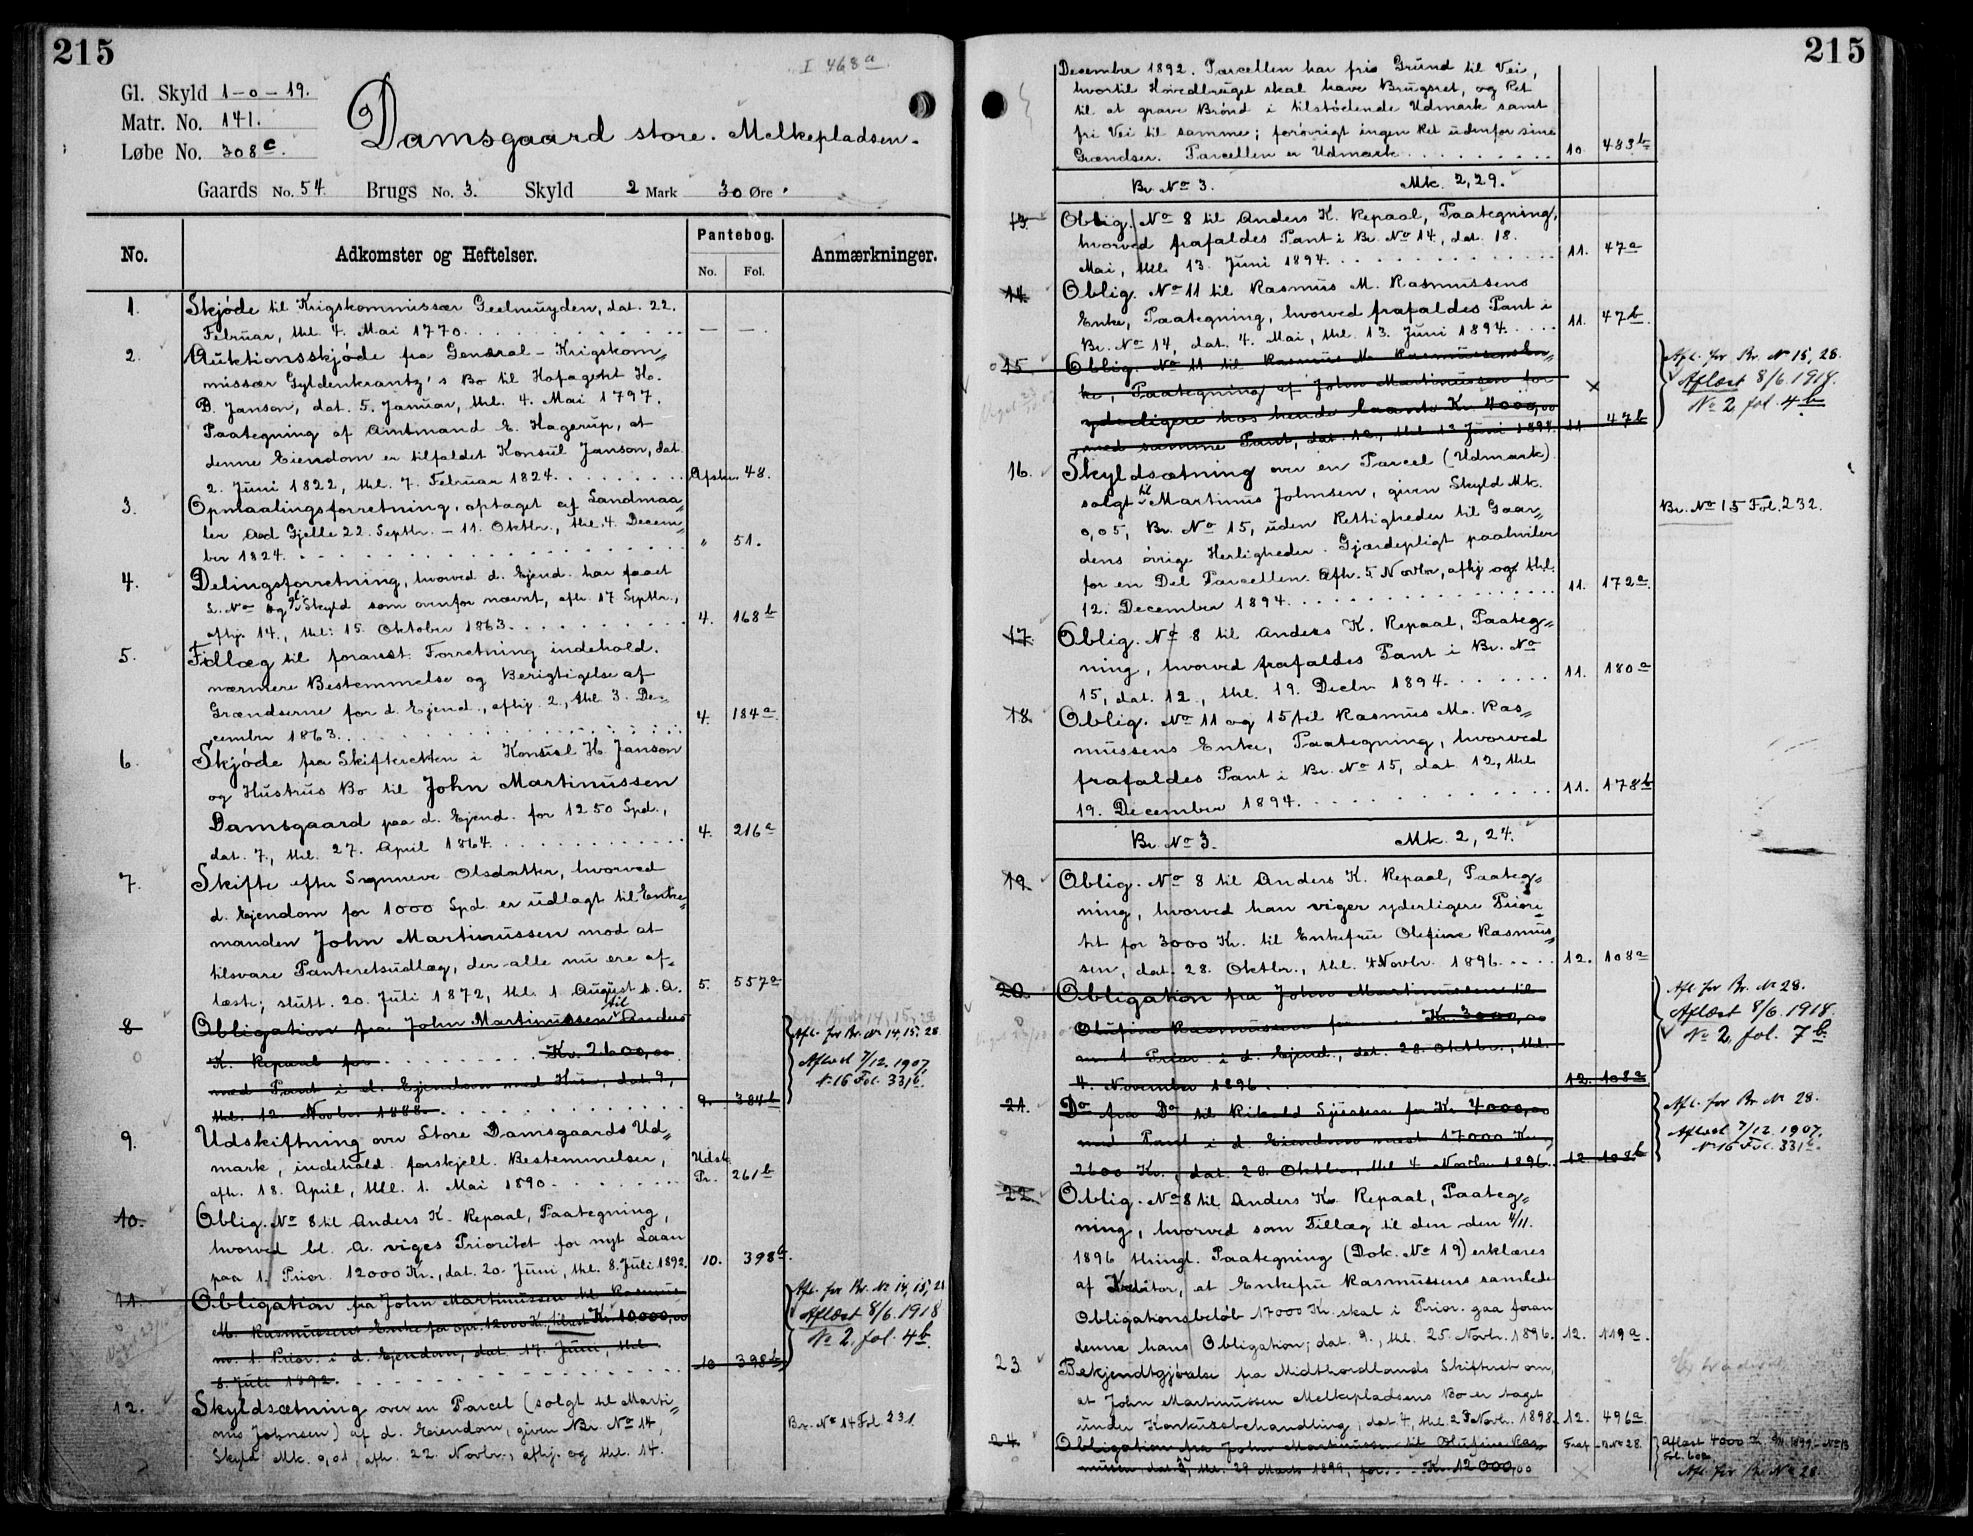 215
I 468a
Gl. Skyld 1-0-19.
Matr. No. 141.
Løbe No. 308c.
Damsgaard store. Melkepladsen.
Gaards No. 54. Brugs No. 3. Skyld 2 Mark 30 Øre.
No. Adkomster og Heftelser. Pantebog. Anmærkninger.
No. Fol.
1. Skjøde til Krigskommissær Geelmuyden, dat. 22.
Februar, thl. 4. Mai 1770. — —
2. Auktionsskjøde fra General-Krigskom=
missær Gyldenkrantz's Bo til Hofagent H.
D. Janson, dat. 5. Januar, thl. 4. Mai 1797.
Paategning af Amtmand E. Hagerup, at
denne Eiendom er tilfaldet Konsul Janson, dat.
2. Juni 1822, thl. 7. Februar 1824. 48.
3. Opmaalingsforretning, optaget af Landmaa=
ler Aad Gjelle 22. Septbr. - 11. Oktbr., thl. 4. Decem=
ber 1824. " 51.
4. Delingsforretning, hvorved d. Ejend. har faaet
L. No og gl. Skyld som ovenfor nævnt, afh. 17 Septbr.,
afhj. 14., thl. 15. Oktober 1863. 4. 168b
5. Tillæg til foranst. Forretning indehold.
nærmere Bestemmelse og Berigtigelse af
Grændserne for d. Ejend., afhj. 2., thl. 3. De=
cember 1863. 4. 184a
6. Skjøde fra Skifteretten i Konsul H. Janson
og Hustrus Bo til John Martinussen
Damsgaard paa d. Ejend. for 1250 Spd.,
dat. 7., thl. 27. April 1864. 4. 216a
7. Skifte efter Synneve Olsdatter, hvorved
d. Ejendom for 1000 Spd. er udlagt til Enke=
manden John Martinussen mod at
tilsvare Panteretsudlæg, der alle nu ere af=
læste; slutt. 20. Juli 1872, thl. 1 August s. A. 5. 557a
8 Obligation fra John Martinussen til Anders
K. Repaal for Kr. 2600,00
med Pant i d. Ejendom med Hus, dat. 9,
thl. 12. Novbr. 1888. 9. 384b
Afl. for Br. No 14, 15, 28.
Aflæst 7/12. 1907.
N. 16 Fol. 331b.
9. Udskiftning over Store Damsgaards Ud=
mark, indehold. forskjell. Bestemmelser,
afh. 18. April, thl. 1. Mai 1890. Udsk. Pr. 261b
10. Oblig. No 8 til Anders K. Repaal, Paategning,
hvorved bl. A. viges Prioritet for nyt Laan
paa 1. Prior. 12000 Kr., dat. 20. Juni, thl. 8. Juli 1892. 10. 398b.
11. Obligation fra John Martinussen til Rasmus
M. Rasmussens Enke for opr. 12000 Kr., tilbage Kr. 10000,00
m. 1. Prior. i d. Ejendom, dat. 17. Juni, thl.
8. Juli 1892. 10 398b
Afl. for Br. No 14, 15, 28
Aflæst 8/6. 1918
No 2. fol. 4b.
12. Skyldsætning over en Parcel (solgt til Marti=
nus Johnsen) af d. Eiendom, given Br. No 14,
Skyld Mk. 0,01, afh. 22. Novbr., afhj. og thl. 14.
Br. No 14 Fol. 231.
215
December 1892. Parcellen har fri Grund til Vei,
hvortil Hovedbruget skal have Brugsret, og Ret
til at grave Brønd i tilstødende Udmark samt
fri Vei til samme; forøvrigt ingen Ret udenfor sine
Grændser. Parcellen er Udmark. 10. 483b
Br. No 3. Mk. 2,29.
13. Oblig. No 8 til Anders K. Repaal, Paategning,
hvorved frafaldes Pant i Br. No 14, dat. 18.
Mai, thl. 13. Juni 1894. 11. 47a
14. Oblig. No 11 til Rasmus M. Rasmussens
Enke, Paategning, hvorved frafaldes Pant i
Br. No 14, dat. 4. Mai, thl. 13. Juni 1894. 11. 47b.
15. Oblig. No 11 til Rasmus M. Rasmussens En=
ke, Paategning af John Martinussen for
yderligere hos hende laante Kr. 4000,00
med samme Pant, dat. 12., thl. 13 Juni 1894. 11. 47b
Afl. for Br. No 15, 28.
Aflæst 8/6. 1918.
No 2 fol. 4b
16. Skyldsætning over en Parcel (Udmark)
solgt til Martinus Johnsen, given Skyld Mk.
0,05, Br. No 15, uden Rettigheder til Gaar=
dens øvrige Herligheder. Gjærdepligt paahviler
for en Del Parcellen. Afh. 5 Novbr., afhj og thl.
12. December 1894. 11. 172a.
Br. No 15 Fol. 232.
17. Oblig. No 8 til Anders K. Repaal, Paateg=
ning, hvorved frafaldes Pant i Br. No
15, dat. 12., thl. 19. Decbr 1894. 11. 180a
18. Oblig. No 11 og 15 til Rasmus M. Ras=
mussens Enke, Paategning, hvorved
frafaldes Pant i Br. No 15, dat. 12, thl.
19. December 1894. 11. 178b
Br. No 3. Mk. 2,24.
19. Oblig. No 8 til Anders K. Repaal, Paateg=
ning, hvorved han viger yderligere Priori=
tet for 3000 Kr. til Enkefru Olufine Rasmus=
sen, dat. 28. Oktbr., thl. 4 Novbr. 1896. 12. 108a
20. Obligation fra John Martinussen til
Olufine Rasmussen for Kr. 3000,00
m. 1. Prior i d. Ejend., dat. 28. Oktbr., thl.
4. November 1896. 12. 108a
Afl. for Br. No 28.
Aflæst 8/6. 1918.
No 2. fol. 7b.
21. Do fra Do til Rikold Sjursen for Kr. 4000,00
med Pant i d. Eiendom næst 17000 Kr.,
2600 Kr., dat. 28. Oktbr., thl 4 Novbr. 1896. 12. 108b
Afl. for Br. No 28.
Aflæst 7/12. 1907.
N. 16 Fol. 331b.
22. Oblig. No 8 til Anders K. Repaal, Paateg=
ning, hvorved som Tillæg til den den 4/11.
1896 thingl. Paategning (Dok. No 19) erklæres
af Kreditor, at Enkefru Rasmussens samlede
Obligationsbeløb 17000 Kr. skal i Prior. gaa foran
denne hans Obligation; dat. 9., thl. 25. Novbr. 1896. 12. 119a.
23 Bekjendtgjørelse fra Midthordlands Skifteret om,
at John Martinussen Melkepladsens Bo er taget
under Konkursbehandling, dat. 4, thl. 23 Novbr. 1898. 12. 496a
24. Obligation fra John Martinussen til Olufine Ras=
mussen, dat. 3, thl. 29 Marts 1899, for Kr. 12000,00
Fraf. B No 28.
Aflæst 4000 K. 1899 - No 13
Fol. 60a
Afl. for Br. No 28.